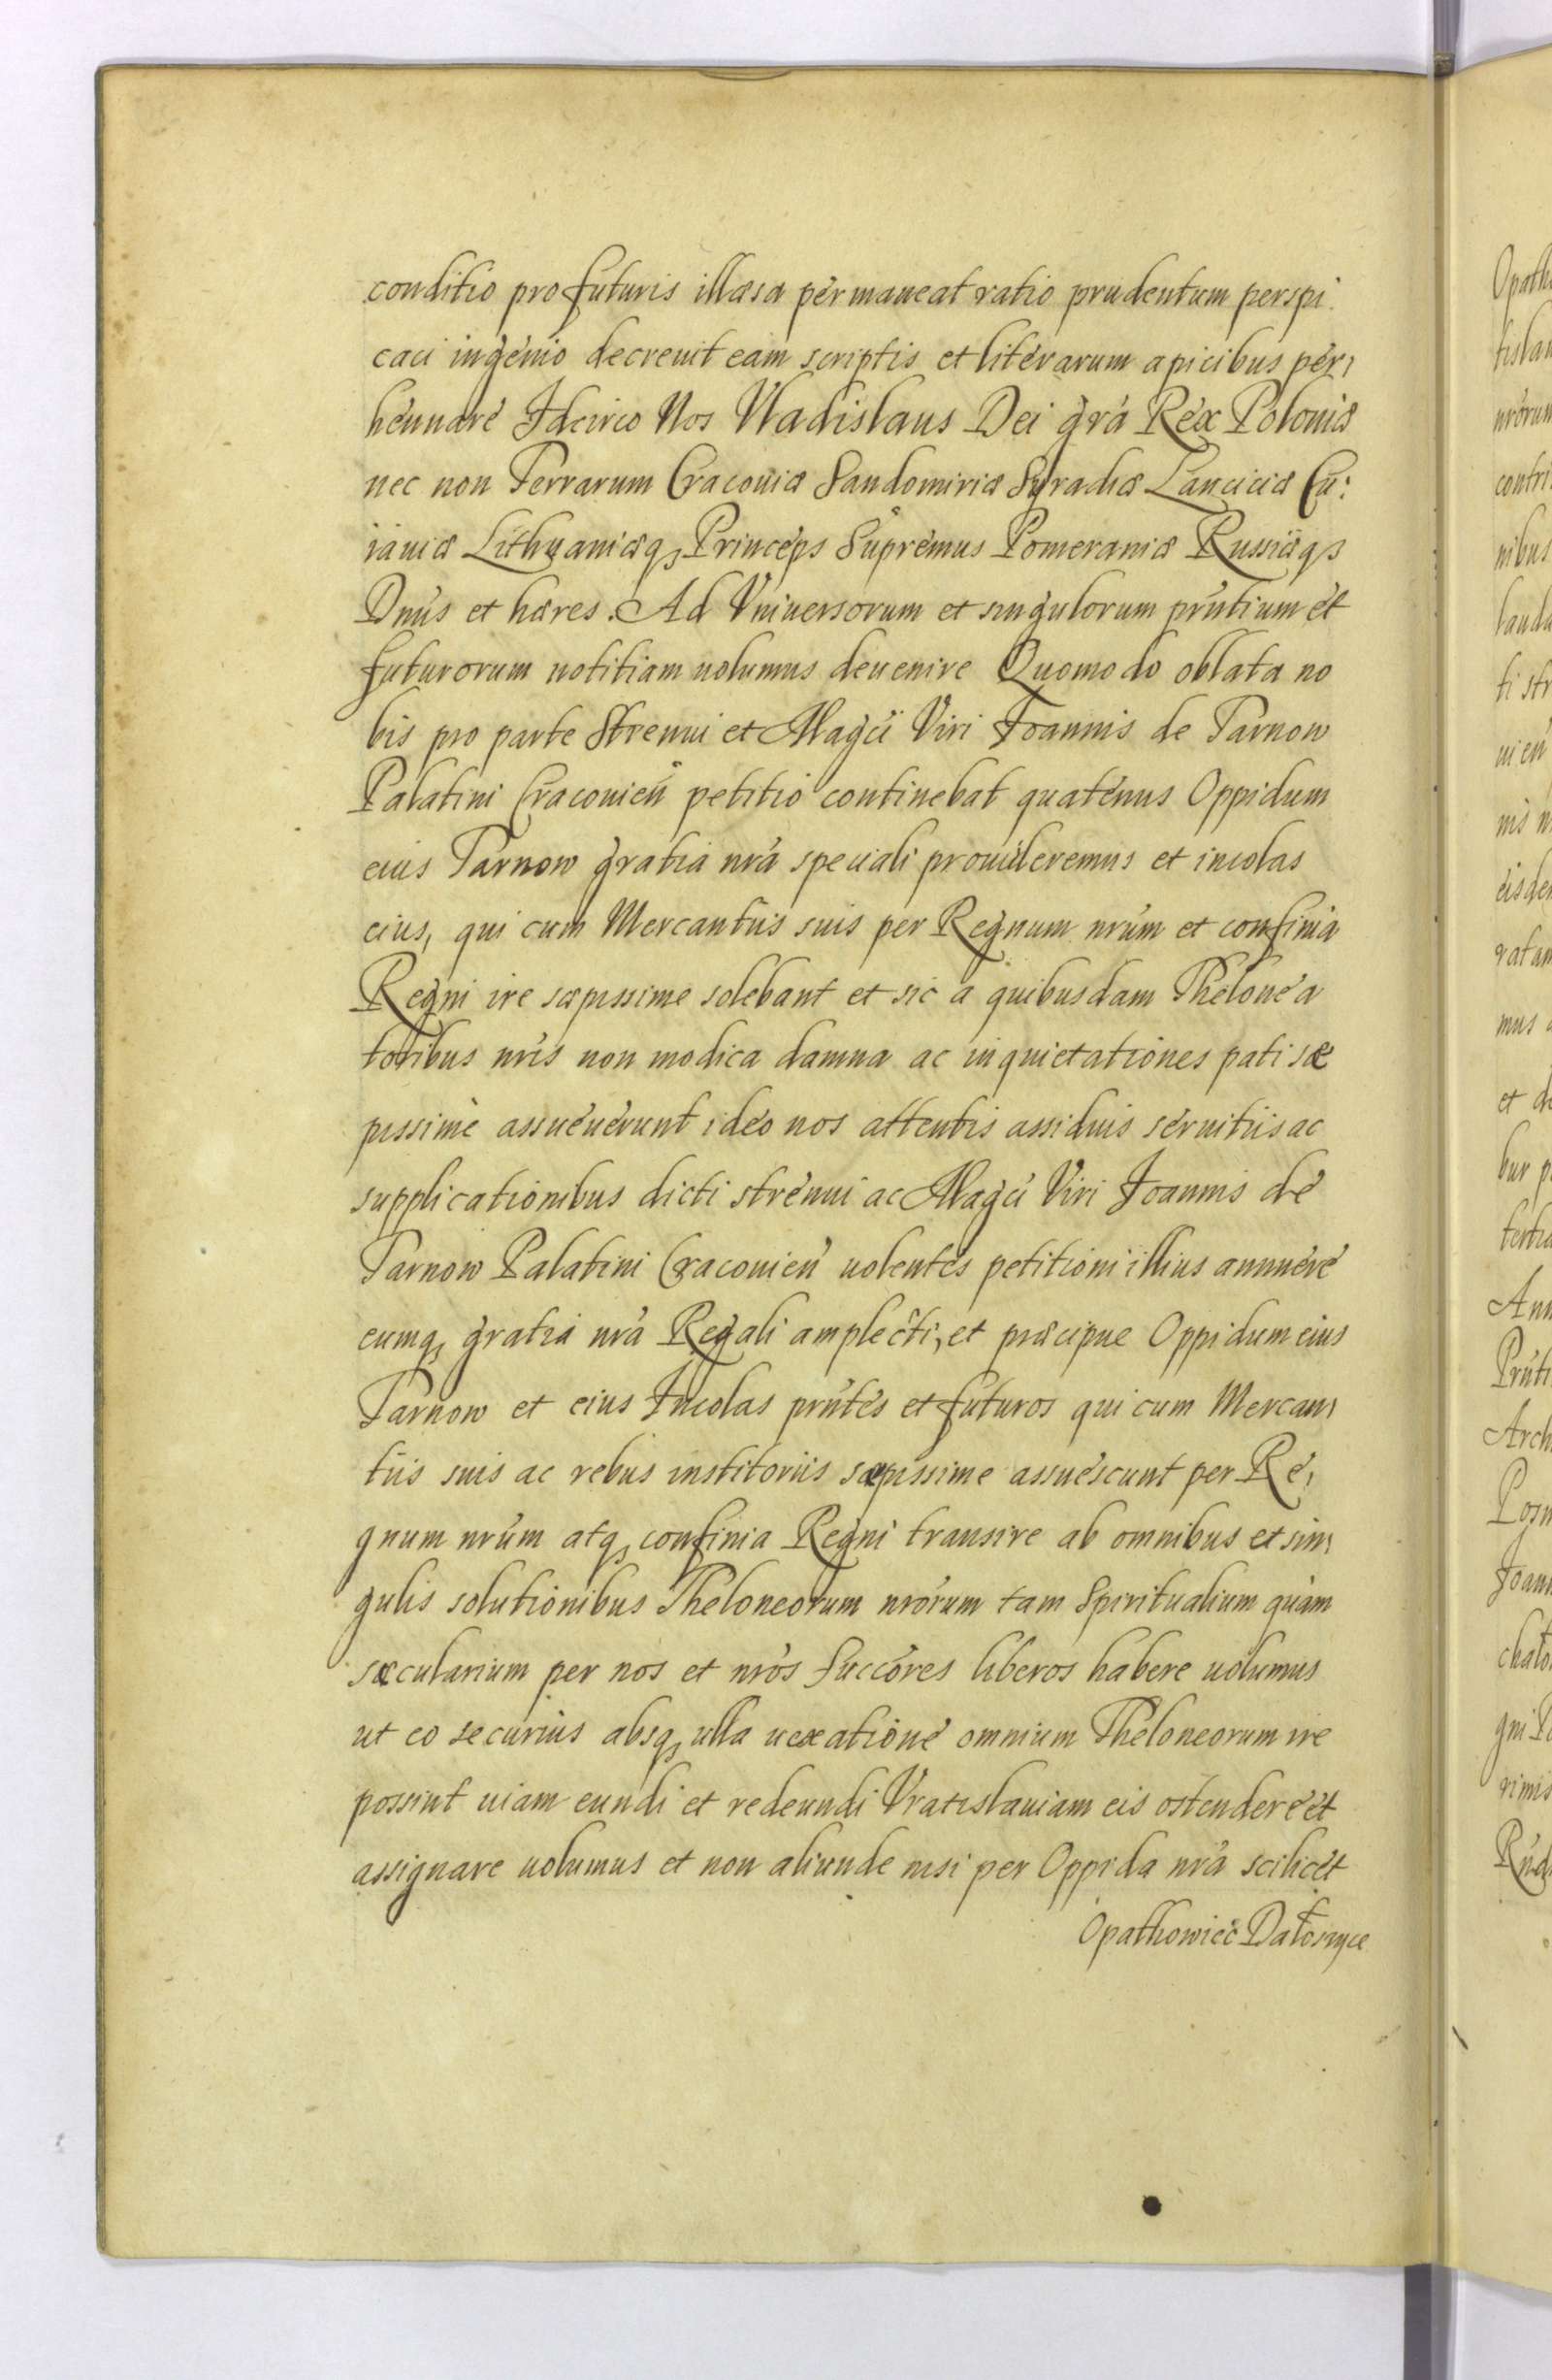 conditio pro futuris illæsa permaneat ratio prudentum perspi
caci ingenio decreuit eam scriptis et literarum apicibus per,
hennare Idcirco Nos Vladislaus Dei gra Rex Poloniæ
nec non Terrarum Cracouiæ Sandomiriæ Syradiæ Lanciciæ Cu:
iauiæ Lithuaniæq, Princeps Supremus Pomeraniæ Russiæq,
Dnus et hæres. Ad Vniuersorum et singulorum prntium et
futurorum notitiam uolumus deuenire Quomodo oblata no
bis pro parte Strenui et Magci Viri Joannis de Tarnow
Palatini Cracouien petitio continebat quatenus Oppidum
eius Tarnow gratia nra speciali prouideremus et incolas
eius, qui cum Mercantiis suis per Regnum nrum et confinia
Regni ire sæpissime solebant et sic a quibusdam Thelonea
toribus nris non modica damna ac inquietationes pati sæ
pissime assueuerunt ideo nos attentis assiduis seruitiis ac
supplicationibus dicti strenui ac Magci Viri Joannis de
Tarnow Palatini Cracouien uolentes petitioni illius annuere
eumq, gratia nra Regali amplecti, et præcipue Oppidum eius
Tarnow et eius Incolas prntes et futuros qui cum Mercan,
tiis suis ac rebus institoriis sæpissime assuescunt per Re,
gnum nrum atq, confinia Regni transire ab omnibus et sin,
gulis solutionibus Theloneorum nrorum tam Spiritualium quam
sæcularium per nos et nros Succores liberos habere uolumus
ut eo securius absq, ulla uexatione omnium Theloneorum ire
possint uiam eundi et redeundi Vratislauiam eis ostendere et
assignare uolumus et non aliunde nisi per Oppida nra scilicet
Opathowiec